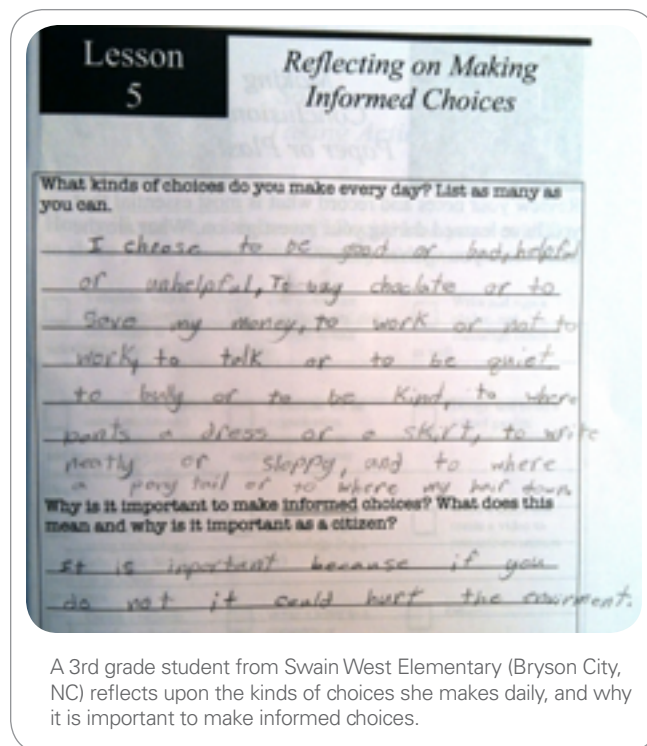 Lesson
5
Reflecting on Making
Informed Choices
What kinds of choices do you make every day? List as many as
you can.
I choose to be good or bad, helpful
or unhelpful, To buy choclate or to
Save my money, to work or not to
work, to talk or to be quiet
to bully or to be Kind, to where
pants a dress or a skirt, to write
neatly or sloppy, and to where
a pony tail or to where my hair down.
Why is it important to make informed choices? What does this
mean and why is it important as a citizen?
It is inportant because if you
do not it could hurt the enwirment.
A 3rd grade student from Swain West Elementary (Bryson City,
NC) reflects upon the kinds of choices she makes daily, and why
it is important to make informed choices.